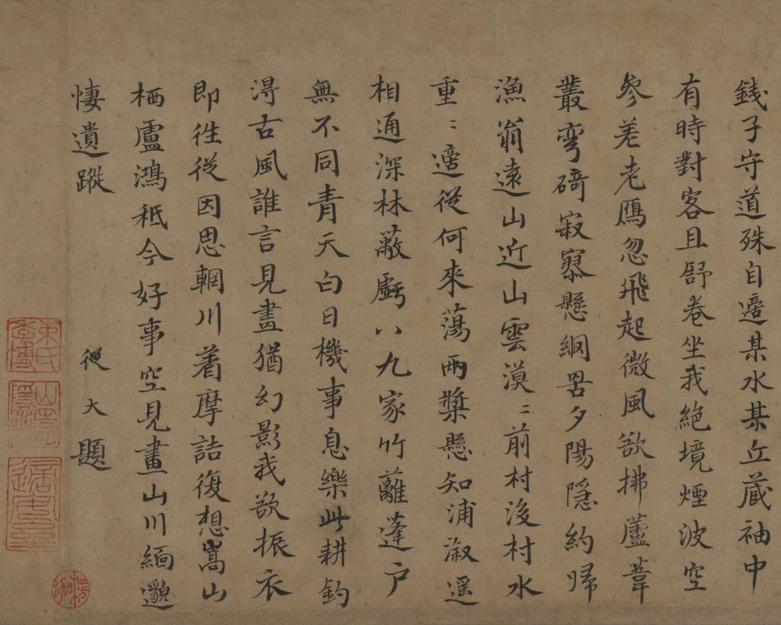 錢子守道殊自適某水某丘藏袖中
有時對客且舒卷坐我絕境煙波空
參差老鴈忽飛起微風欲拂蘆葦
叢彎碕寂寞懸網罟夕陽隱約歸
漁翁遠山近山雲漠〻前村後村水
重〻適從何來蕩兩槳懸知浦漵遥
相通深林蔽虧八九家竹籬蓬户
無不同青天白日機事息樂此耕釣
淂古風誰言見畫猶幻影我欲振衣
即徃從因思輞川着摩詰復想嵩山
栖盧鴻秪今好事空見畫山川緬邈
悽遺蹤
從大題